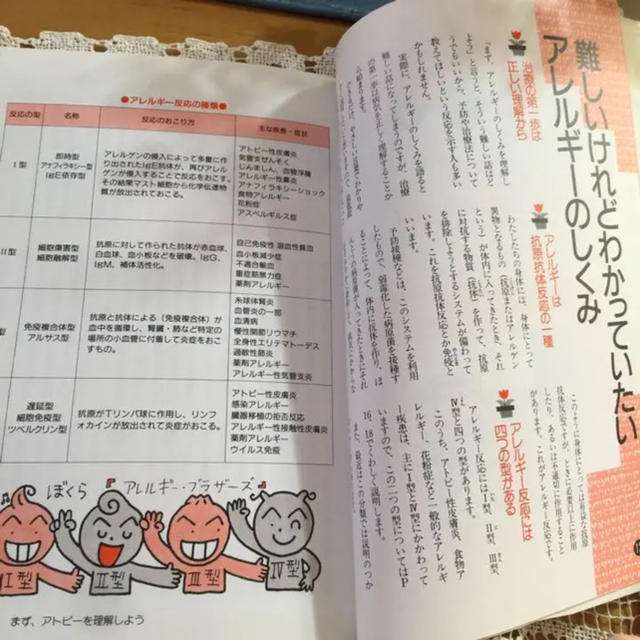 ●アレルギー反応の種類●
反応の型 名称 反応のおこり方 主な疾患・症状
Ⅰ型
即時型
アナフィラキシー型
IgE依存型
アレルゲンの侵入によって多量に作
り出されたIgE抗体が、再びアレル
ゲンが侵入することで反応をおこす。
その結果マスト細胞から化学伝達物
質が放出されておこる。
アトピー性皮膚炎
気管支ぜんそく
じんましん、血管浮腫
アレルギー性鼻炎
アナフィラキシーショック
食物アレルギー
花粉症
アスペルギルス症
Ⅱ型
細胞傷害型
細胞融解型
抗原に対して作られた抗体が赤血球、
白血球、血小板などを破壊。IgG、
IgM、補体活性化。
自己免疫性 溶血性貧血
血小板減少症
不適合輸血
重症筋無力症
薬剤アレルギー
型
免疫複合体型
アルサス型
抗原と抗体による(免疫複合体)が
血中を循環し、腎臓・肺など特定の
場所の小血管に付着して炎症をおこ
すもの。
糸球体腎炎
血管炎の一部
血清病
慢性関節リウマチ
全身性エリテマトーデス
過敏性肺炎
薬剤アレルギー
アレルギー性気管支炎
遅延型
細胞免疫型
ツベルクリン型
抗原がTリンパ球に作用し、リンフ
ォカインが放出されて炎症がおこる。
アトピー性皮膚炎
感染アレルギー
臓器移植の拒否反応
アレルギー性接触性皮膚炎
薬剤アレルギー
ウイルス免疫
ぼくら『アレルギー・ブラザーズ』
Ⅰ型
Ⅱ型
Ⅲ型
Ⅳ型
まず、アトピーを理解しよう
難しいけれどわかっていたい
アレルギーのしくみ
治療の第一歩は
正しい理解から
「まず、アレルギーのしくみを理解し
よう」と言うと、そういう難しい話はど
うでもいいから、予防や治療法について
教えてほしいという反応を示す人も多い
かもしれません。
実際に、アレルギーのしくみを語ると
難しい話になってしまうのですが、治療
の第一歩は病気を正しく理解することか
アレルギーは
抗原抗体反応の一種
わたしたちの身体には、身体にとって
異物となるもの(抗原またはアレルゲン
という)が体内に入ってきたとき、それ
に対抗する物質(抗体)を作って、抗原
を排除しようとするシステムが備わって
います。これを抗原抗体反応とか免疫と
いいます。
予防接種などは、このシステムを利用
したもので、弱毒化した病原菌を接種す
ることによって、体内に抗体を作り、ほ
このように身体にとっては有益な抗原
抗体反応ですが、ときに必要以上に作用
したり、あるいは不適応に作用すること
があります。これがアレルギー反応です。
アレルギー反応には
四つの型がある
アレルギー反応にはⅠ型、Ⅱ型、Ⅲ型、
Ⅳ型と四つの型があります。
このうち、アトピー性皮膚炎、食物ア
レルギー、花粉症など一般的なアレルギ
ー疾患は、主にⅠ型とⅣ型にかかわって
いますので、この二つの型についてはP
16、18でくわしく説明します。
また、最近はこの分類では説明のつか